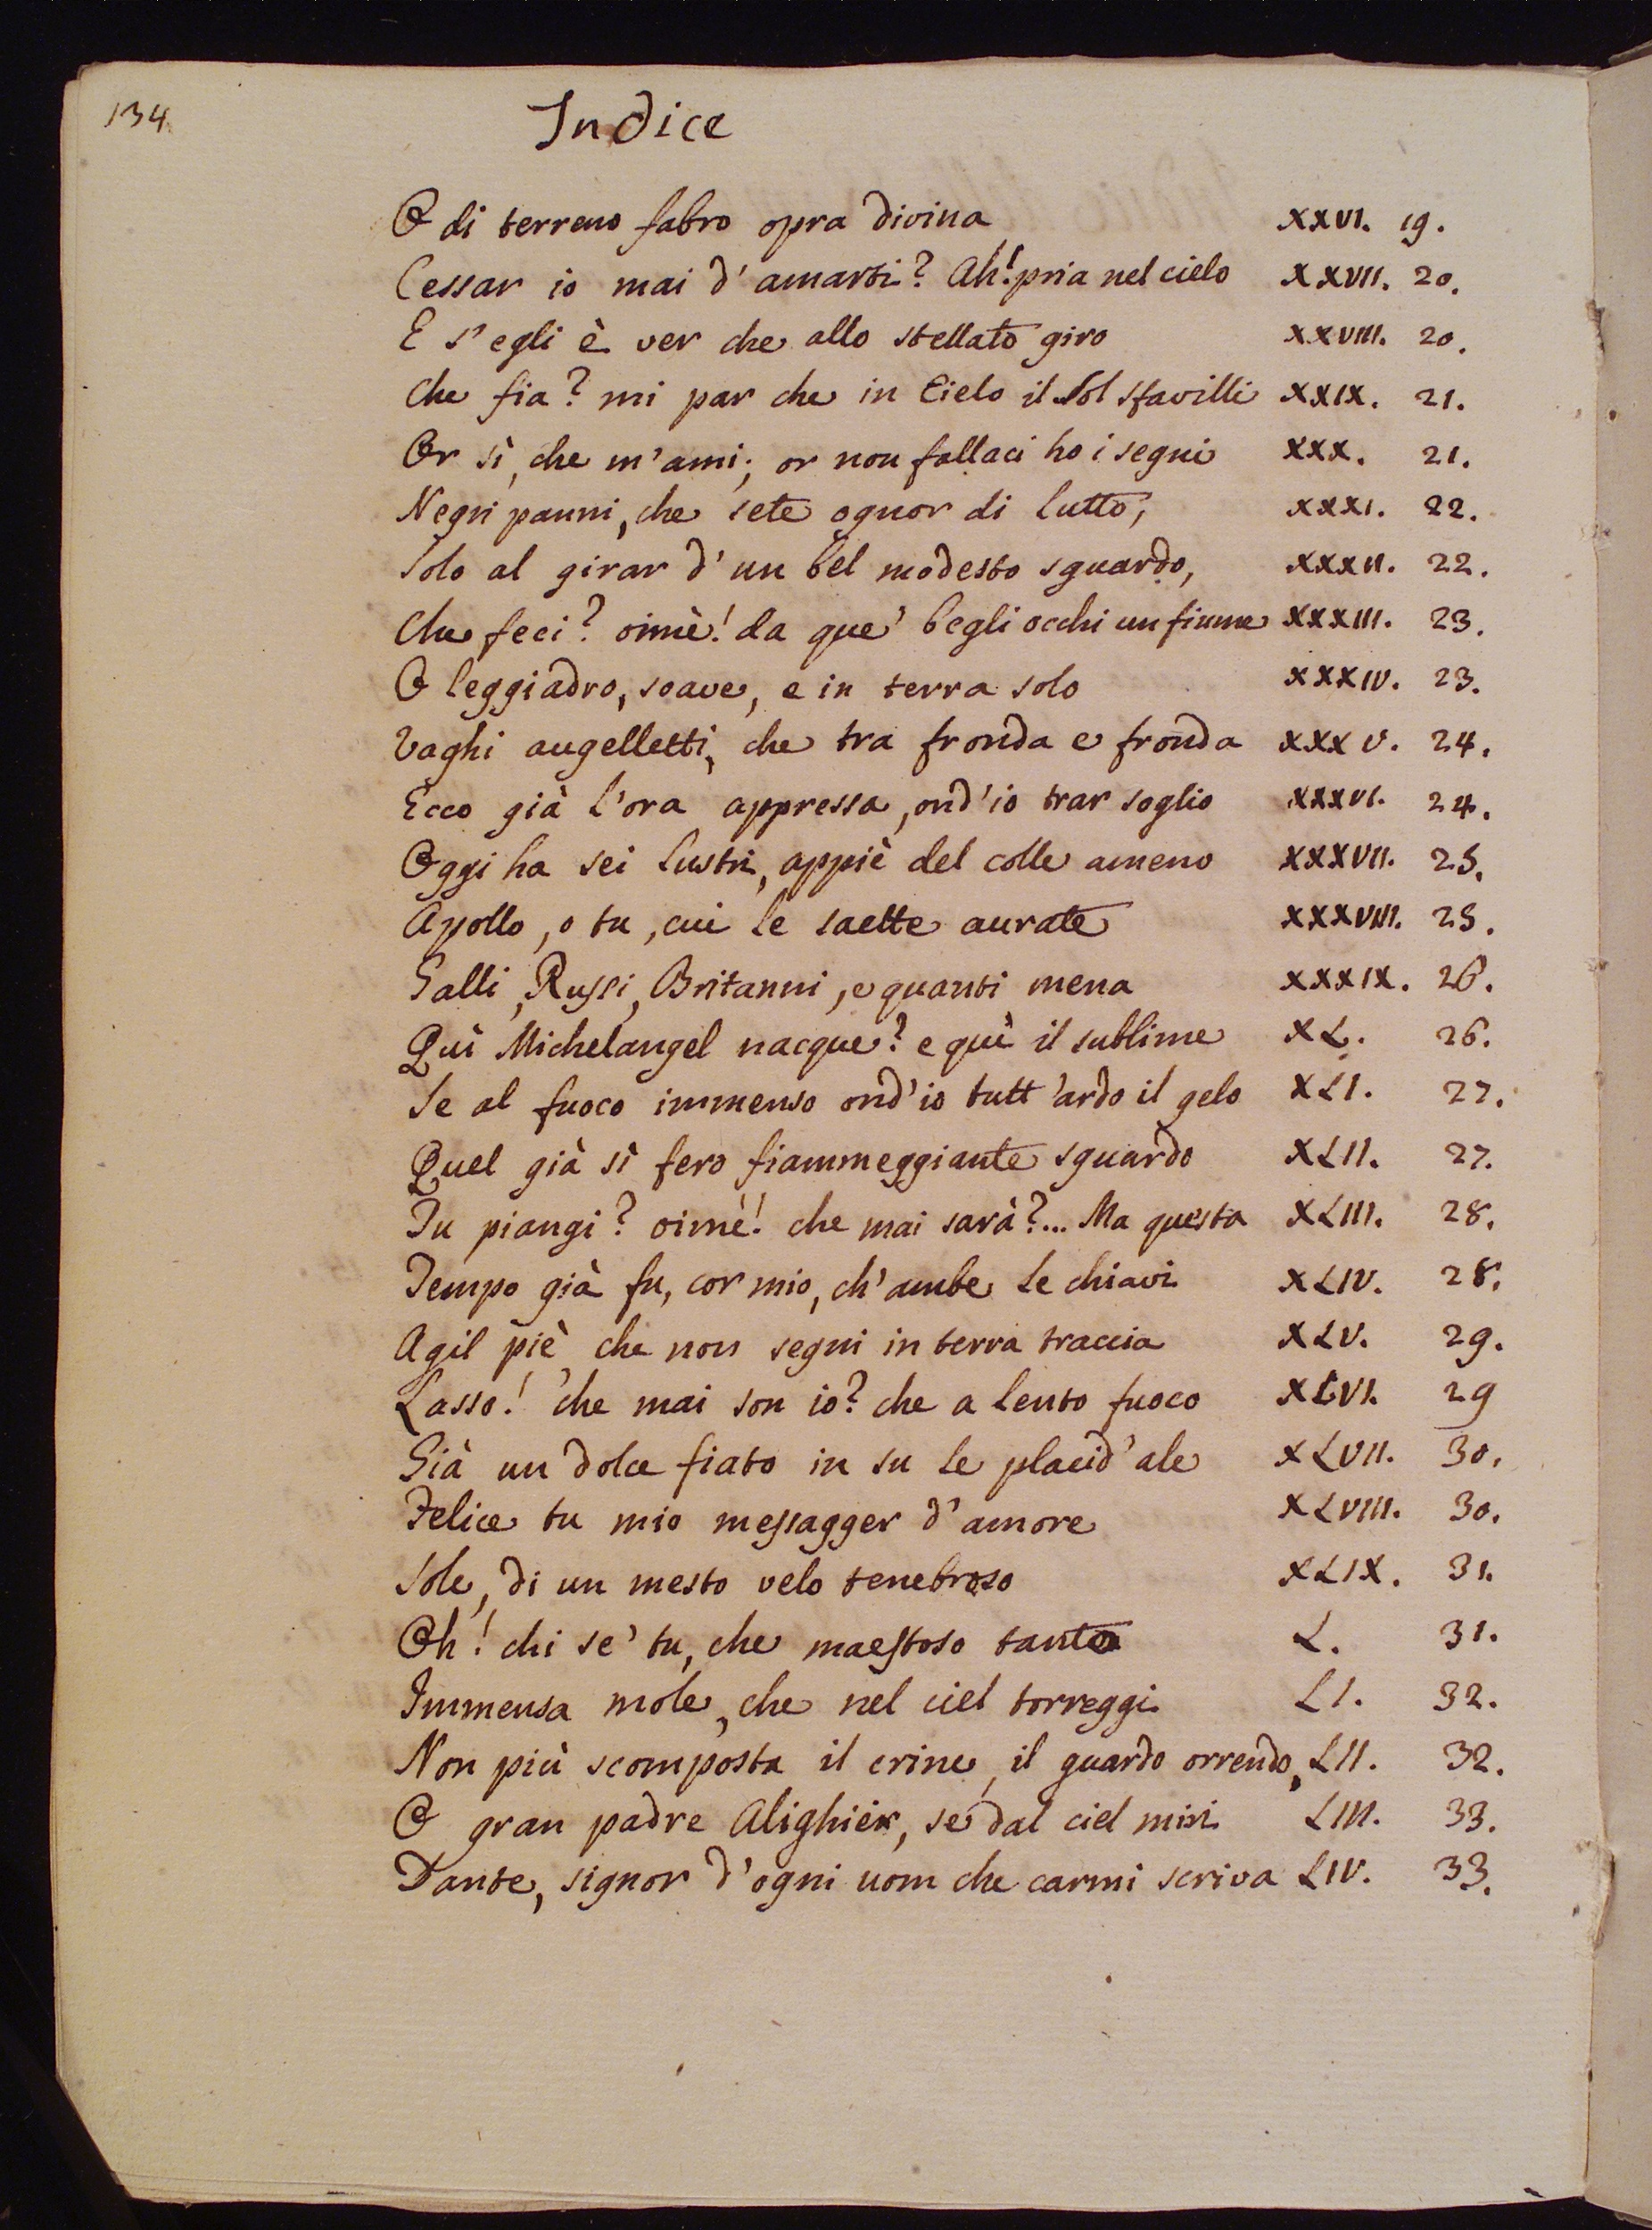 134.
Indice
O di terreno fabro opra divina XXVI. 19.
Cessar io mai d'amarti? Ah! pria nel cielo XXVII. 20.
E s'egli è ver che allo stellato giro XXVIII. 20.
Che fia? mi par che in Cielo il Sol sfavilli XXIX. 21.
Or sì, che m'ami; or non fallaci ho i segni XXX. 21.
Negri panni, che sete ognor di lutto, XXXI. 22.
Solo al girar d'un bel modesto sguardo, XXXII. 22.
Che feci? oimè! da que' begli occhi un fiume XXXIII. 23.
O leggiadro, soave, e in terra solo XXXIV. 23.
Vaghi augelletti, che tra fronda e fronda XXXV. 24.
Ecco già l'ora appressa, ond'io trar soglio XXXVI. 24.
Oggi ha sei lustri, appiè del colle ameno XXXVII. 25.
Apollo, o tu, cui le saette aurate XXXVIII. 25.
Galli, Russi, Britanni, e quanti mena XXXIX. 26.
Quì Michelangel nacque? e quì il sublime XL. 26.
Se al fuoco immenso ond'io tutt'ardo il gelo XLI. 27.
Quel già sì fero fiammeggiante sguardo XLII. 27.
Tu piangi? oimè! che mai sarà?... Ma questa XLIII. 28.
Tempo già fu, cor mio, ch'ambe le chiavi XLIV. 28.
Agil piè, che non segni in terra traccia XLV. 29.
Lasso! che mai son io? che a lento fuoco XLVI. 29
Già un dolce fiato in su le placid'ale XLVII. 30.
Felice tu mio messagger d'amore XLVIII. 30.
Sole, di un mesto velo tenebroso XLIX. 31.
Oh! chi se' tu, che maestoso tanto L. 31.
Immensa mole, che nel ciel torreggi LI. 32.
Non più scomposta il crine, il guardo orrendo, LII. 32.
O gran padre Alighier, se dal ciel miri LIII. 33.
Dante, signor d'ogni uom che carmi scriva LIV. 33.